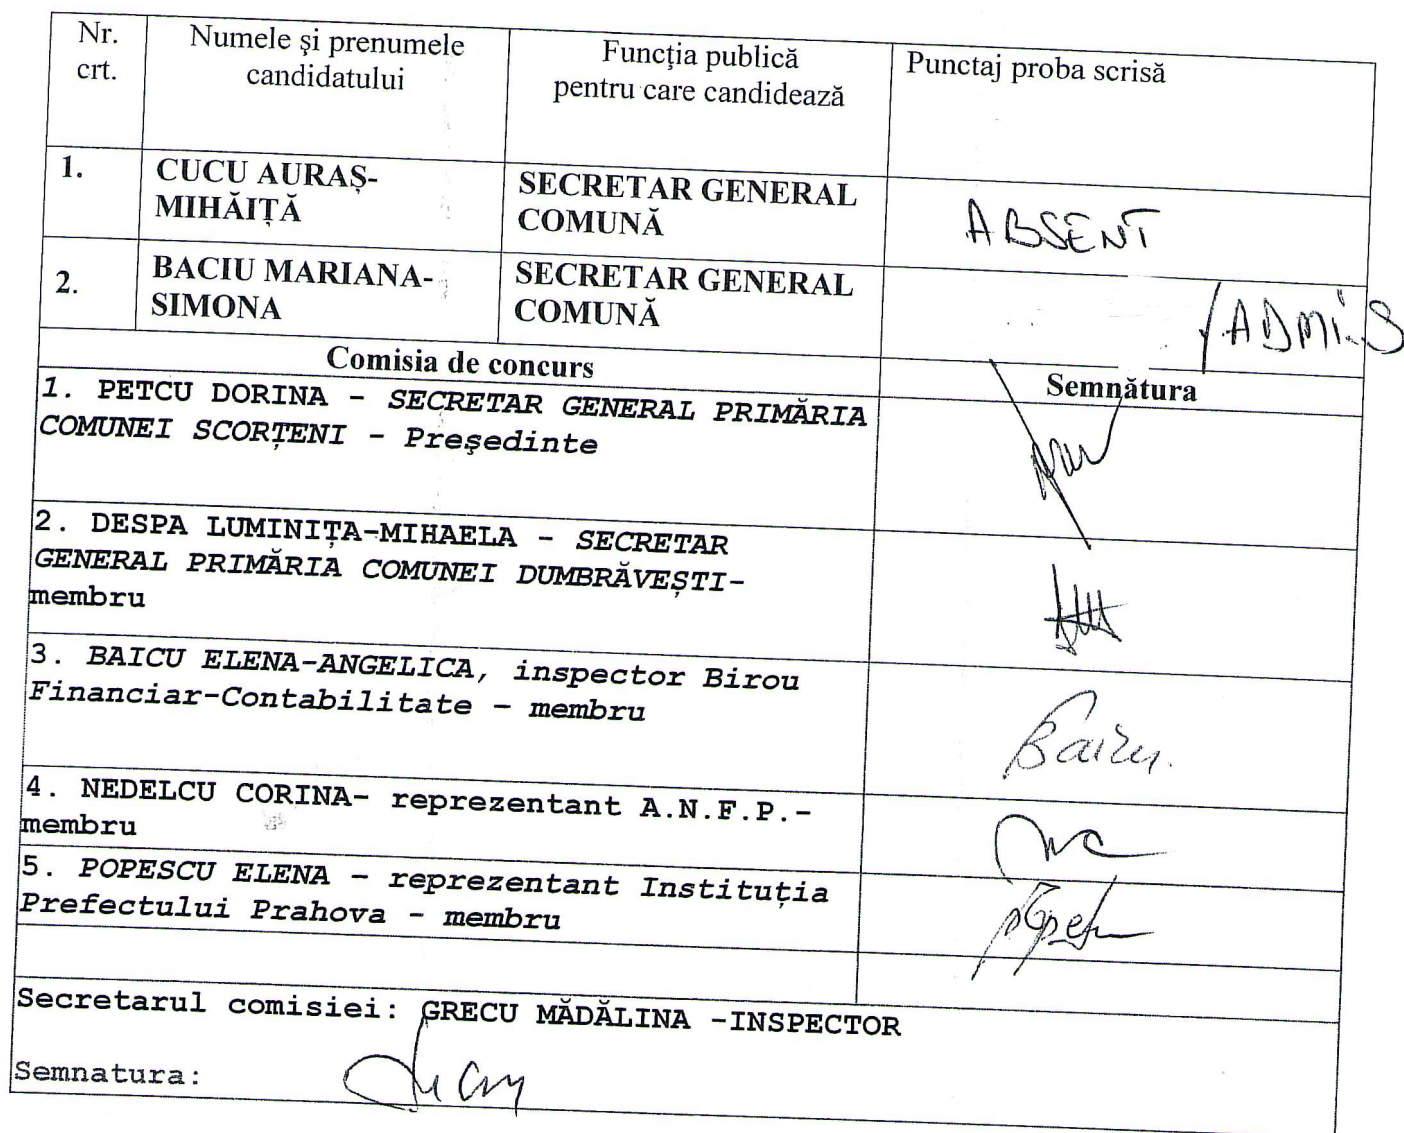 Nr. crt.
Numele şi prenumele candidatului
Funcţia publică pentru care candidează
Punctaj proba scrisă
1.
CUCU AURAȘ-
MIHĂIȚĂ
SECRETAR GENERAL
COMUNĂ
ABSENT
2.
BACIU MARIANA-
SIMONA
SECRETAR GENERAL
COMUNĂ
/ADMIS
Comisia de concurs
Semnătura
1. PETCU DORINA – SECRETAR GENERAL PRIMĂRIA
COMUNEI SCORȚENI – Preşedinte
2. DESPA LUMINIȚA-MIHAELA – SECRETAR
GENERAL PRIMĂRIA COMUNEI DUMBRĂVEȘTI-
membru
3. BAICU ELENA-ANGELICA, inspector Birou
Financiar-Contabilitate – membru
Baicu
4. NEDELCU CORINA- reprezentant A.N.F.P.-
membru
5. POPESCU ELENA – reprezentant Instituția
Prefectului Prahova - membru
Secretarul comisiei: GRECU MĂDĂLINA -INSPECTOR
Semnatura: